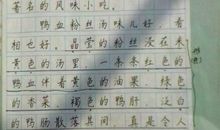 著名的风味小吃。
鸭血粉丝汤味儿好，看
相也好。晶莹的粉丝浸在米
黄色的汤里，一条条红色的
鸭血伴着黄色的油果，绿色
的香菜，褐色的鸭肝，泛白
的鸭肠散落其间，真是令人